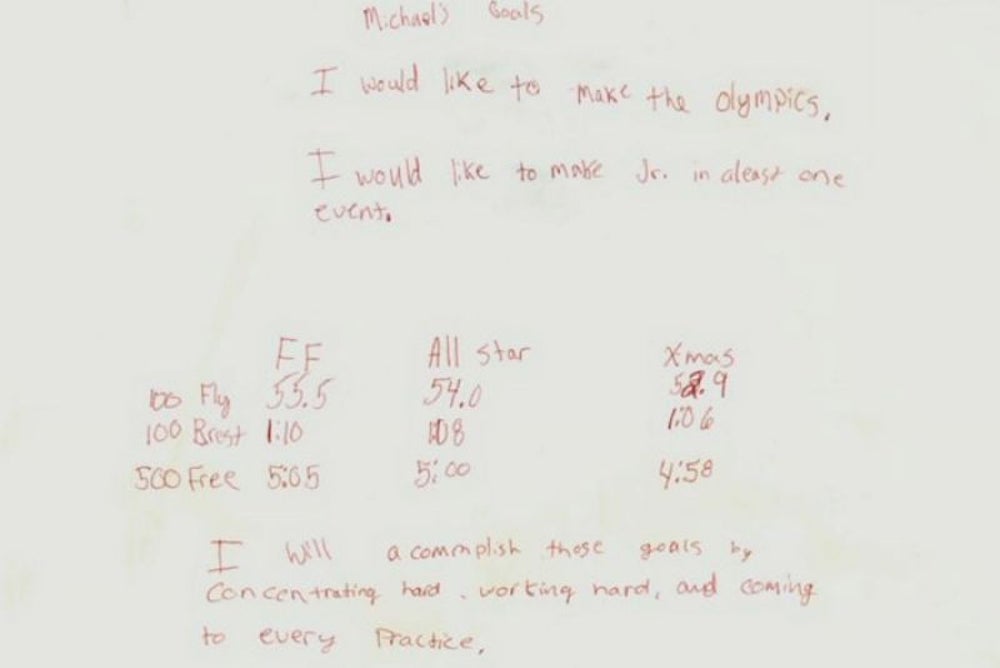 Michael's Goals
I would like to make the olympics.
I would like to make Jr. in aleast one
event.
FF All star Xmas
100 Fly 55.5 54.0 52.9
100 Brest 1:10 108 1:06
500 Free 5:05 5:00 4:58
I will acommplish those goals by
Concentrating hard, working hard, and coming
to every Practice.